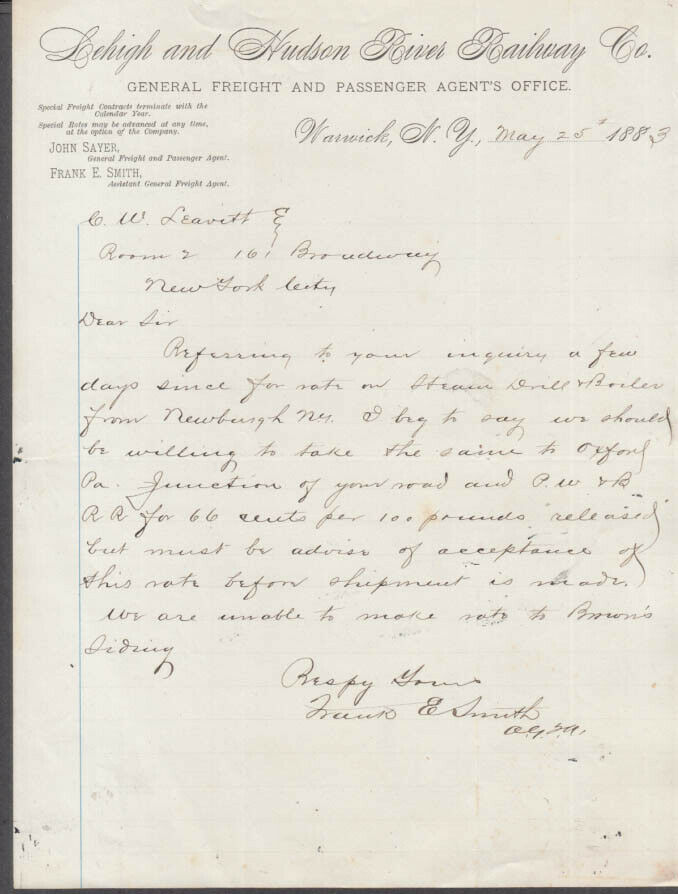 Lehigh and Hudson River Railway Co.
GENERAL FREIGHT AND PASSENGER AGENT'S OFFICE.
Special Freight Contracts terminate with the
Calendar Year.
Special Rates may be advanced at any time,
at the option of the Company.
JOHN SAYER,
General Freight and Passenger Agent.
FRANK E. SMITH,
Assistant General Freight Agent.
Warwick, N. Y., May 25" 1883
C. W. Leavitt
Room 2 161 Broadway
New York City
Dear Sir
Referring to your inquiry a few
days since for rate on Steam Drill & Boiler
from Newburgh Ny. I beg to say we should
be willing to take the same to Oxford
Pa. Junction of your road and P. W & B
R R for 66 cents per 100 pounds "released"
but must be advise of acceptance of
this rate before shipment is made.
We are unable to make rate to Brown's
Siding
Respy Yours
Frank E Smith